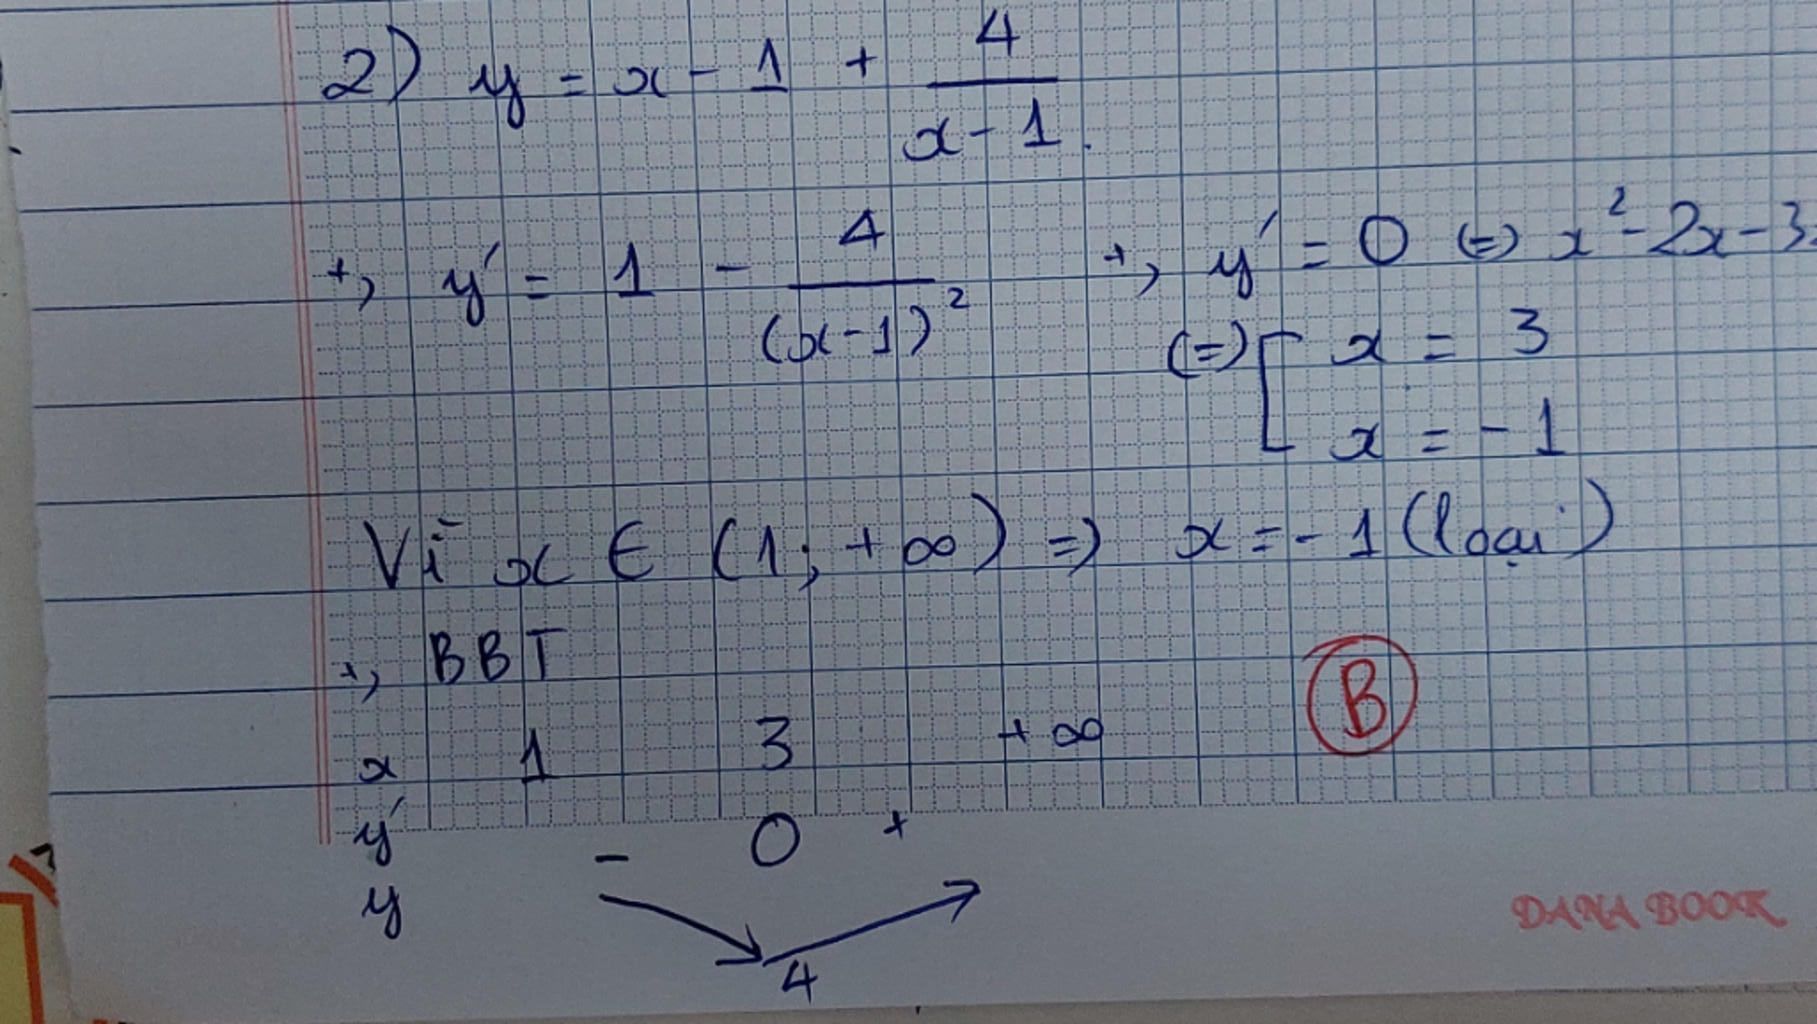 2) y = x - 1 + 4/(x - 1).
+, y' = 1 - 4/(x-1)²
+, y' = 0 (=) x² - 2x - 3
(=) [ x = 3
x = -1
Vì x ∈ (1; +∞) => x = -1 (loại)
+, BBT
B
x 1 3 +∞
y' - 0 +
y
4
DANA BOOK